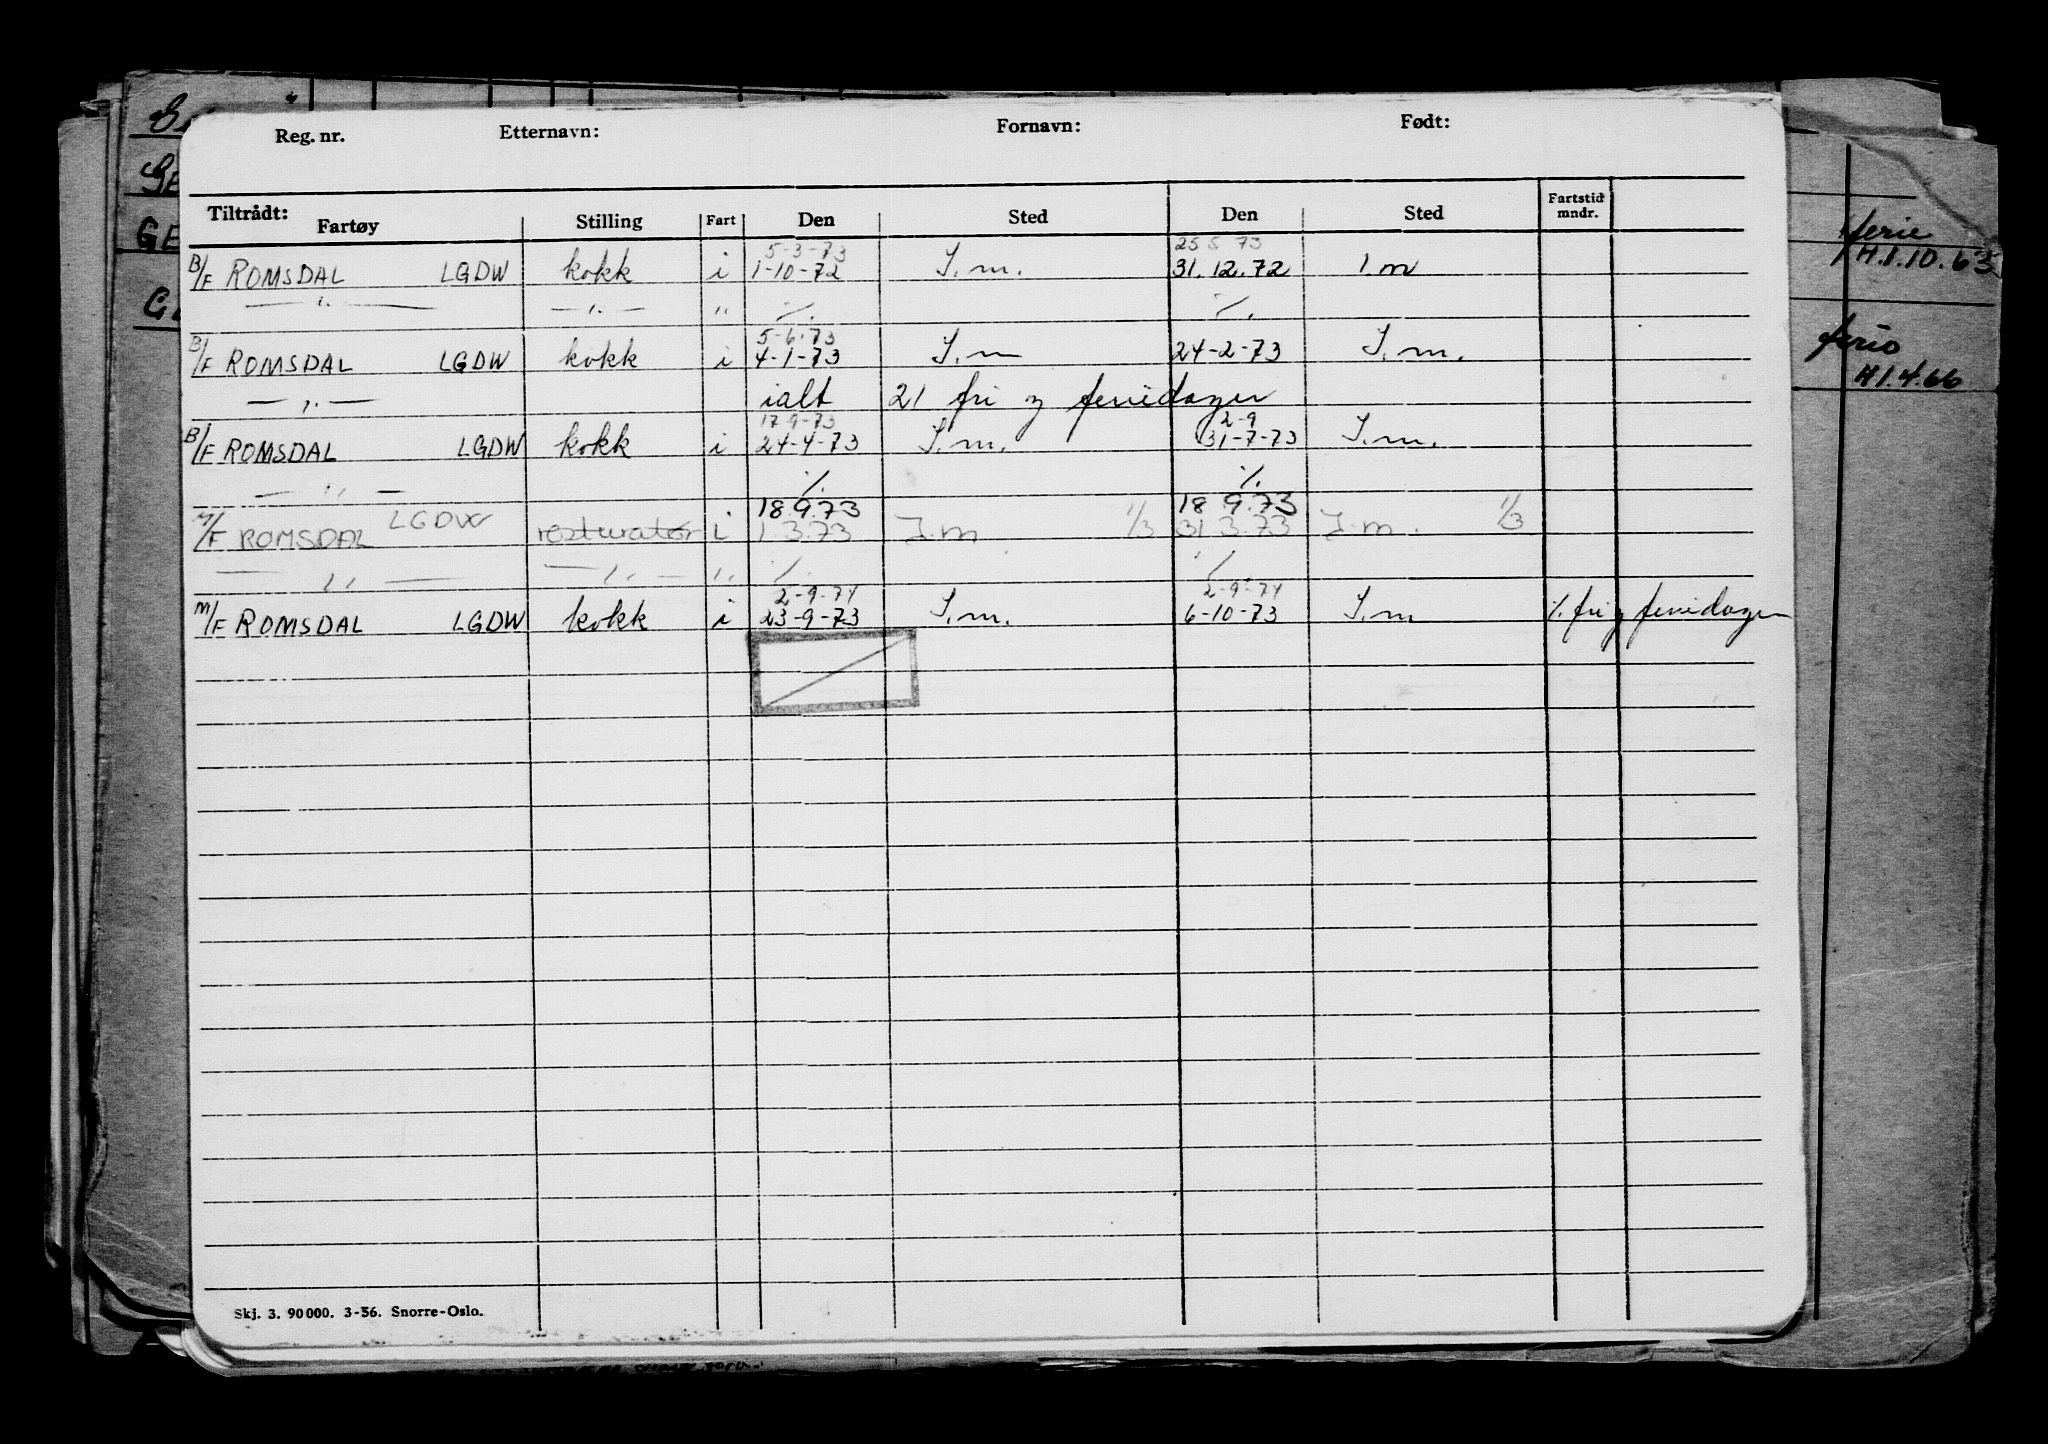 Reg. nr. Etternavn: Fornavn: Født:
Tiltrådt: Fartøy Stilling Fart Den Sted Den Sted Fartstid mndr.
5-3-73 25 5 73
B/F ROMSDAL LGDW kokk i 1-10-72 I.m. 31.12.72 I m
—〃— —〃— 〃 ⁒ ⁒
5-6-73
B/F ROMSDAL LGDW kokk i 4-1-73 I.m 24-2-73 I.m.
—〃— ialt 21 fri og feriedager
17-9-73 2-9
B/F ROMSDAL LGDW kokk i 24-4-73 I.m. 31-7-73 I.m.
—〃— ⁒ ⁒
18.9.73 18.9.73
M/F ROMSDAL LGDW i 1.3.73 I.m 1/3 31.3.73 I.m. 1/3
—〃— —〃— 〃 ⁒ ⁒
2-9-74 2-9-74
M/F ROMSDAL LGDW kokk i 23-9-73 I.m. 6-10-73 I.m ⁒ fri og feriedager
Skj. 3. 90000. 3-56. Snorre-Oslo.
GE
ferie
H.1.10.63
ferie
H1.4.66